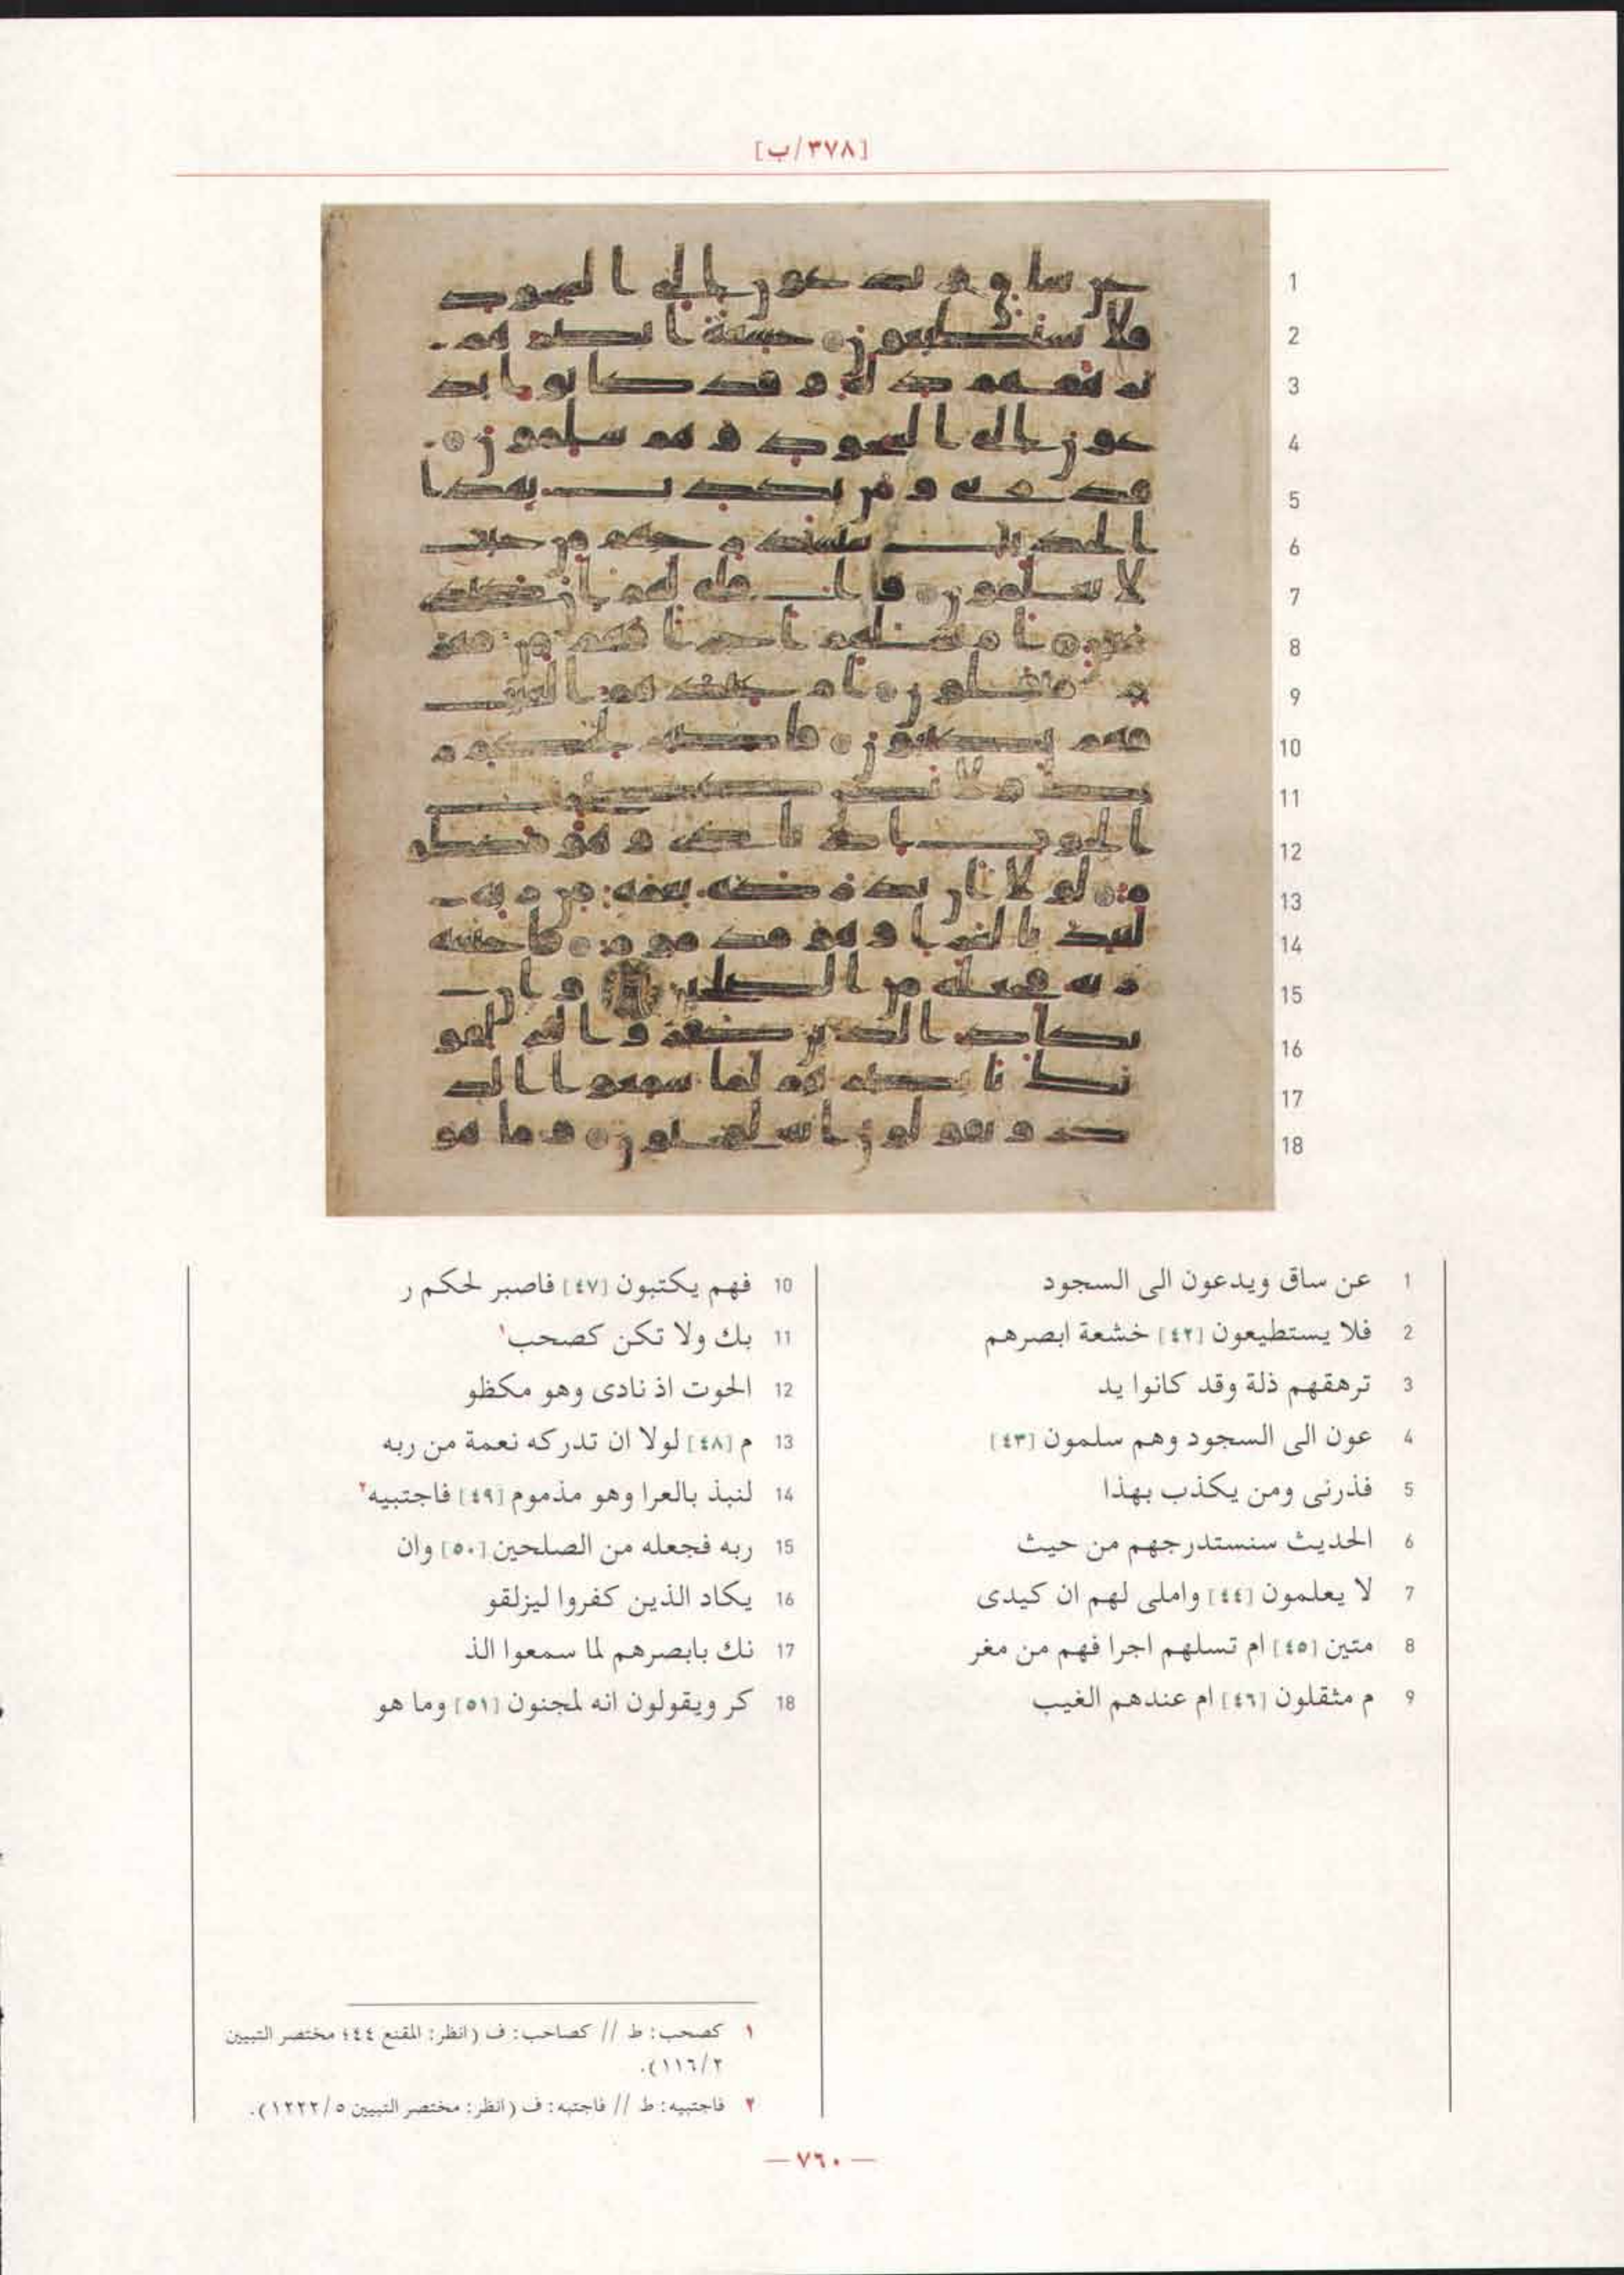 [٣٧٨/ب]
1 عن ساق ويدعون الى السجود
2 فلا يستطيعون [٤٢] خشعة ابصرهم
3 ترهقهم ذلة وقد كانوا يد
4 عون الى السجود وهم سلمون [٤٣]
5 فذرنى ومن يكذب بهذا
6 الحديث سنستدرجهم من حيث
7 لا يعلمون [٤٤] واملى لهم ان كيدى
8 متين [٤٥] ام تسلهم اجرا فهم من مغر
9 م مثقلون [٤٦] ام عندهم الغيب
10 فهم يكتبون [٤٧] فاصبر لحكم ر
11 بك ولا تكن كصحب١
12 الحوت اذ نادى وهو مكظو
13 م [٤٨] لولا ان تدركه نعمة من ربه
14 لنبذ بالعرا وهو مذموم [٤٩] فاجتبيه٢
15 ربه فجعله من الصلحين [٥٠] وان
16 يكاد الذين كفروا ليزلقو
17 نك بابصرهم لما سمعوا الذ
18 كر ويقولون انه لمجنون [٥١] وما هو
١ كصحب: ط // كصاحب: ف (انظر: المقنع ٤٤٤ مختصر التبيين
٢/١١٦).
٢ فاجتبيه: ط // فاجتبه: ف (انظر: مختصر التبيين ٥/١٢٢٢).
— ٧٦٠ —